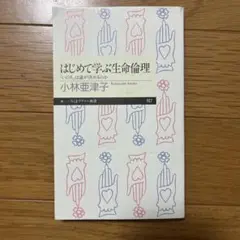 はじめて学ぶ生命倫理
「いのち」は誰が決めるのか
小林亜津子
Kobayashi Atsuko
ちくまプリマー新書